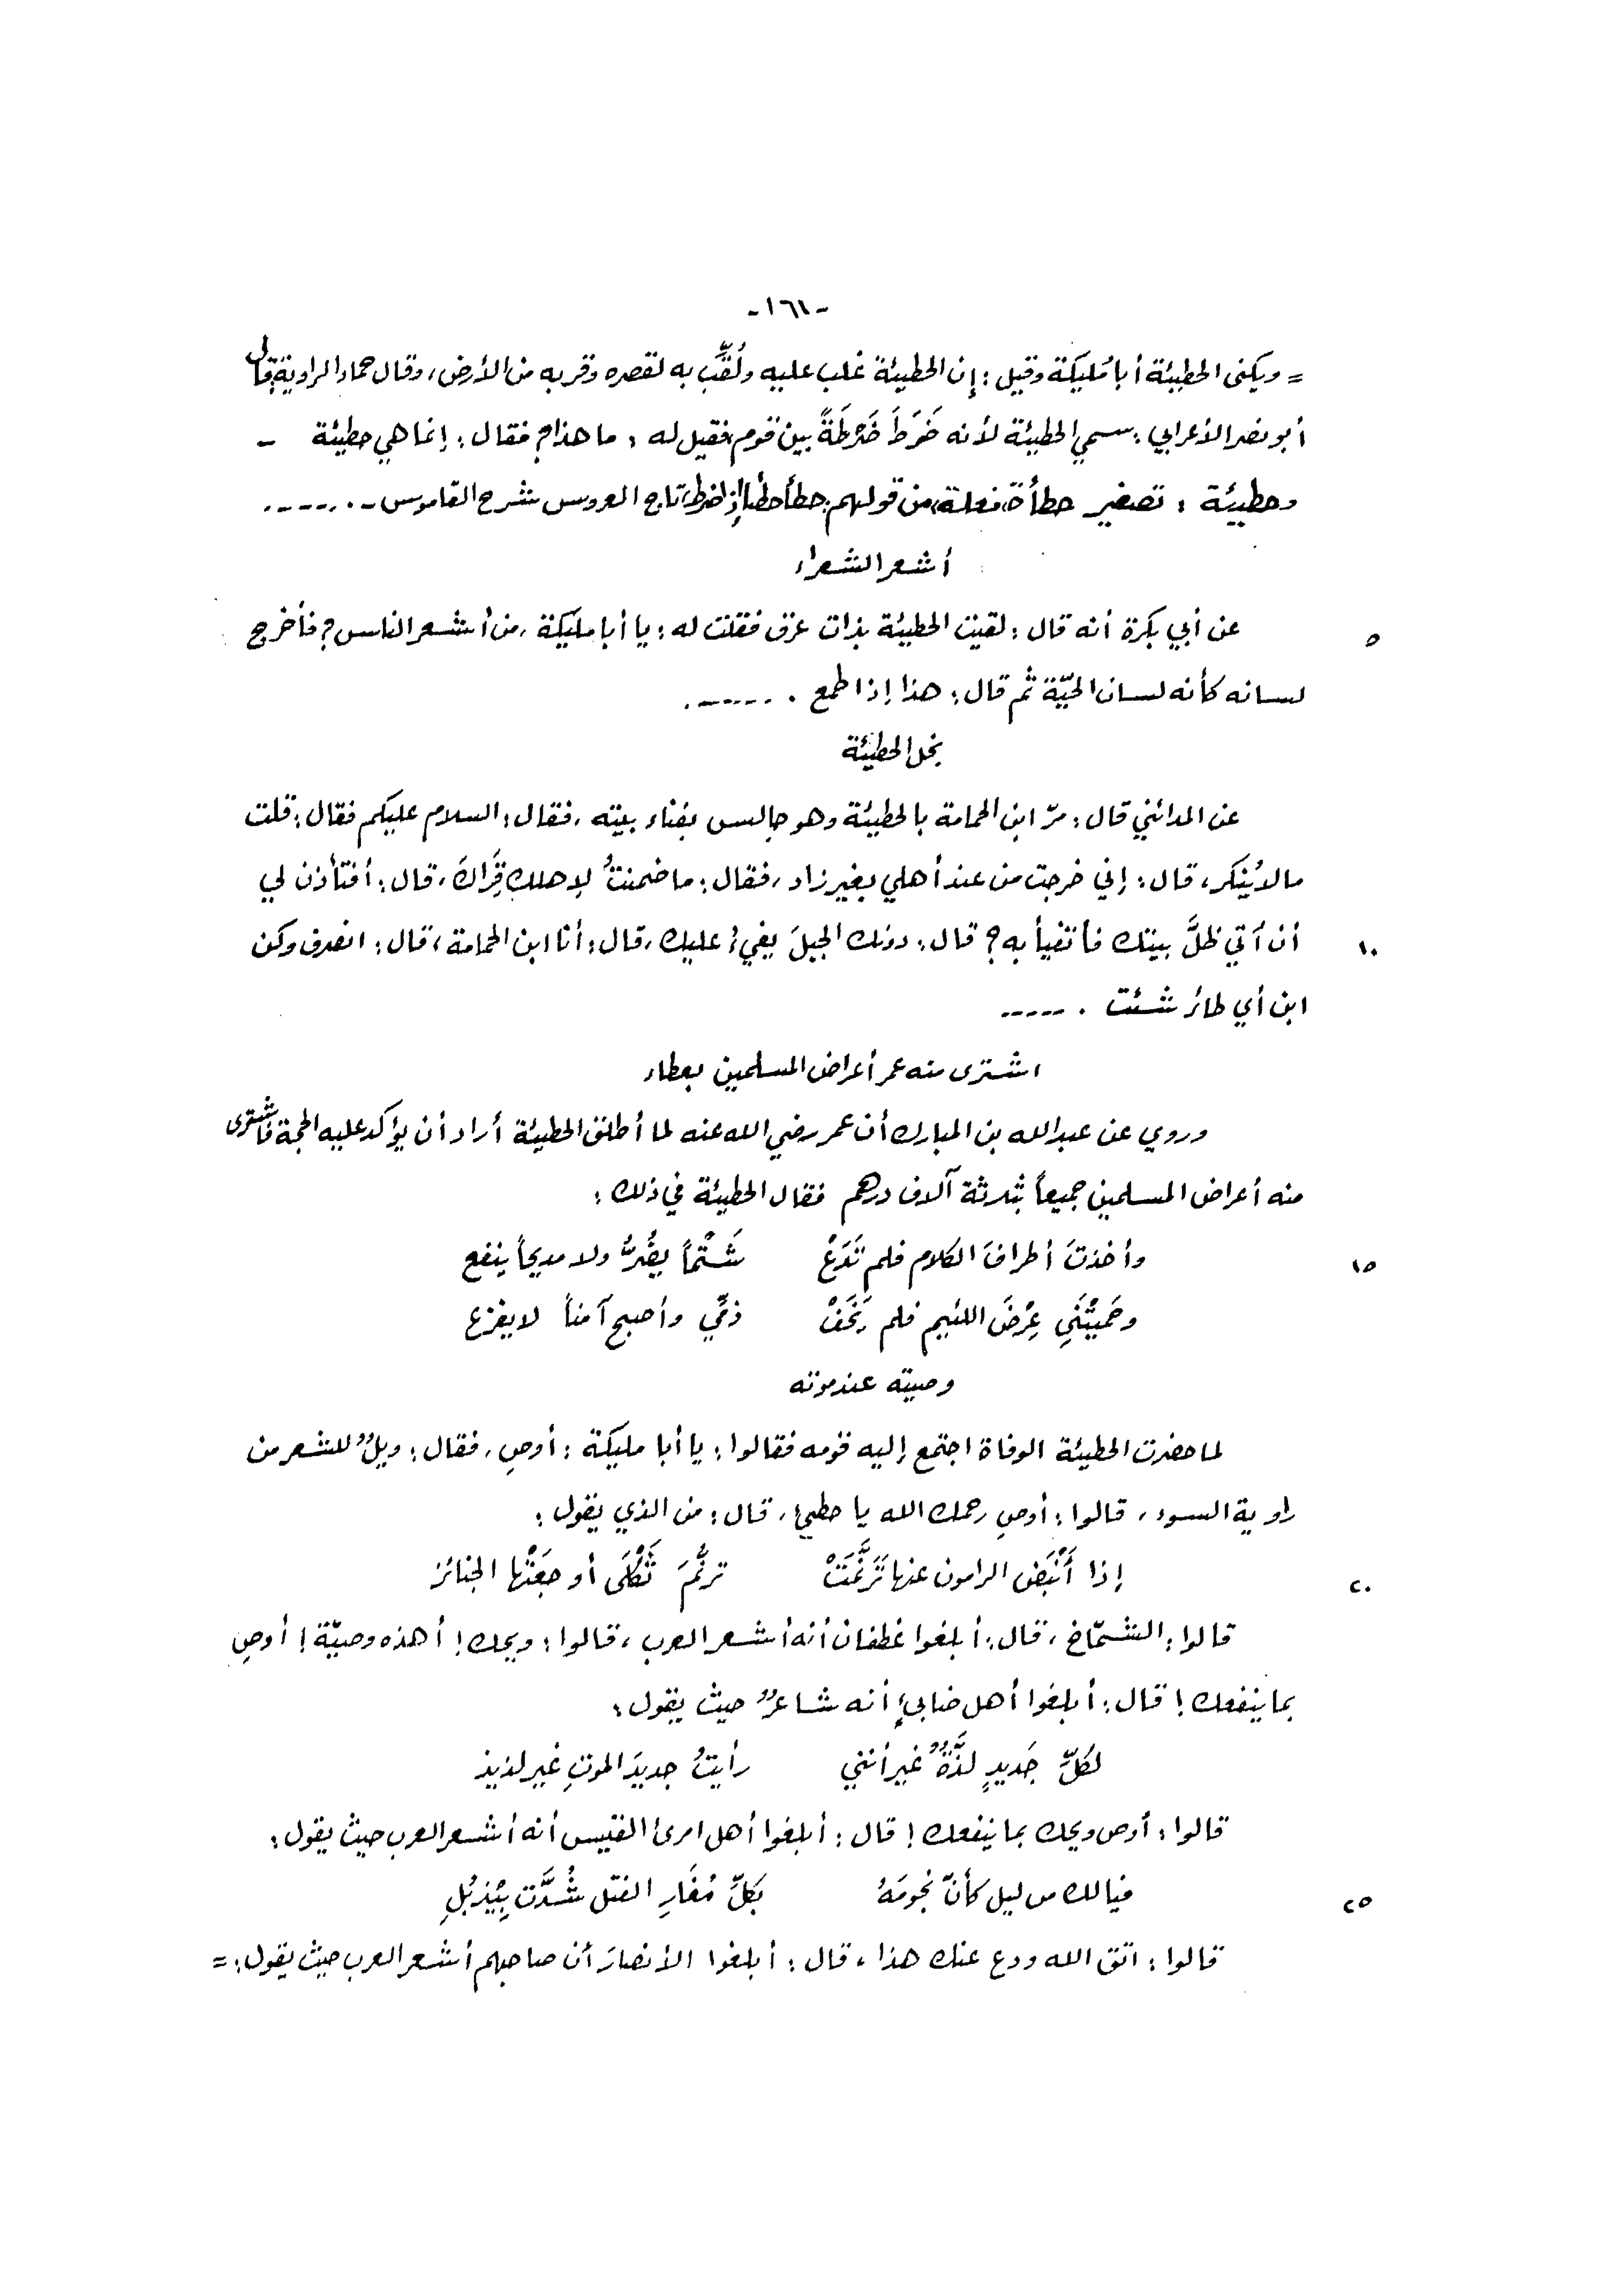 -١٦١-
= ويكنى الحطيئة أبا مُليكة وقيل : إن الحطيئة غلب عليه ولُقّب به لقصره وقربه من الأرض ، وقال حماد الراوية : قال
أبو نصر الأعرابي : سمي الحطيئة لأنه ضَرَطَ ضَرْطَةً بين قوم ، فقيل له : ما هذا ؟ فقال : إنما هي حطيئة -
وحطيئة : تصغير حطأة ، فعلة ، من قولهم : حطأ حطأ إذا ضرط ، تاج العروس شرح القاموس - . ..----.
أشعر الشعراء
٥ عن أبي بكرة أنه قال : لقيت الحطيئة بذات عرق فقلت له : يا أبا مليكة ، من أشعر الناس ؟ فأخرج
لسانه كأنه لسان الحيّة ثم قال : هذا إذا طمع . ..----.
بخل الحطيئة
عن المدائني قال : مرّ ابن الحمامة بالحطيئة وهو جالس بفناء بيته ، فقال : السلام عليكم فقال : قلت
ما لا يُنكر ، قال : إني خرجت من عند أهلي بغير زاد ، فقال : ما ضمنتُ لإهلك قِراكَ ، قال : أفتأذن لي
١٠ أن آتي ظلَّ بيتك فأتفيأ به ؟ قال : دونك الجبلَ يفيءُ عليك ، قال : أنا ابن الحمامة ، قال : انصرف وكن
ابن أي طائر شئت . -----
اشترى منه عمر أعراض المسلمين بعطاء
وروي عن عبد الله بن المبارك أن عمر رضي الله عنه لما أطلق الحطيئة أراد أن يؤكد عليه الحجة فاشترى
منه أعراض المسلمين جميعاً بثلاثة آلاف درهم فقال الحطيئة في ذلك :
١٥ وأخذتَ أطرافَ الكلام فلم تَدَعْ شَتْماً يضُرُّ ولا مديحاً ينفع
وحَميْتَني عِرْضَ اللئيم فلم يَخَفْ ذمّي وأصبح آمناً لا يفزع
وصيته عند موته
لما حضرت الحطيئة الوفاة اجتمع إليه قومه فقالوا : يا أبا مليكة : أوصِ ، فقال : ويلٌ للشعر من
راوية السوء ، قالوا : أوصِ رحمك الله يا حطيئ ، قال : من الذي يقول :
٢٠ إذا أَنْبَضَ الرامون عنها تَرَنَّمَتْ ترنُّمَ ثَكْلَى أوجعَتْها الجنائز
قالوا : الشمّاخ ، قال : أبلغوا غطفان أنه أشعر العرب ، قالوا : ويحك ! أهذه وصيّة ! أوصِ
بما ينفعك ! قال : أبلغوا أهل ضابئٍ أنه شاعرٌ حيث يقول :
لكلّ جَديدٍ لذّةٌ غير أنني رأيتُ جديدَ الموتِ غير لذيذ
قالوا : أوص ويحك بما ينفعك ! قال : أبلغوا أهل امرئ القيس أنه أشعر العرب حيث يقول :
٢٥ فيا لك من ليل كأنّ نجومَهُ بكلّ مُغَارِ الفتل شُدَّت بِيَذبُلِ
قالوا : اتق الله ودع عنك هذا ، قال : أبلغوا الأنصارَ أن صاحبهم أشعر العرب حيث يقول : =